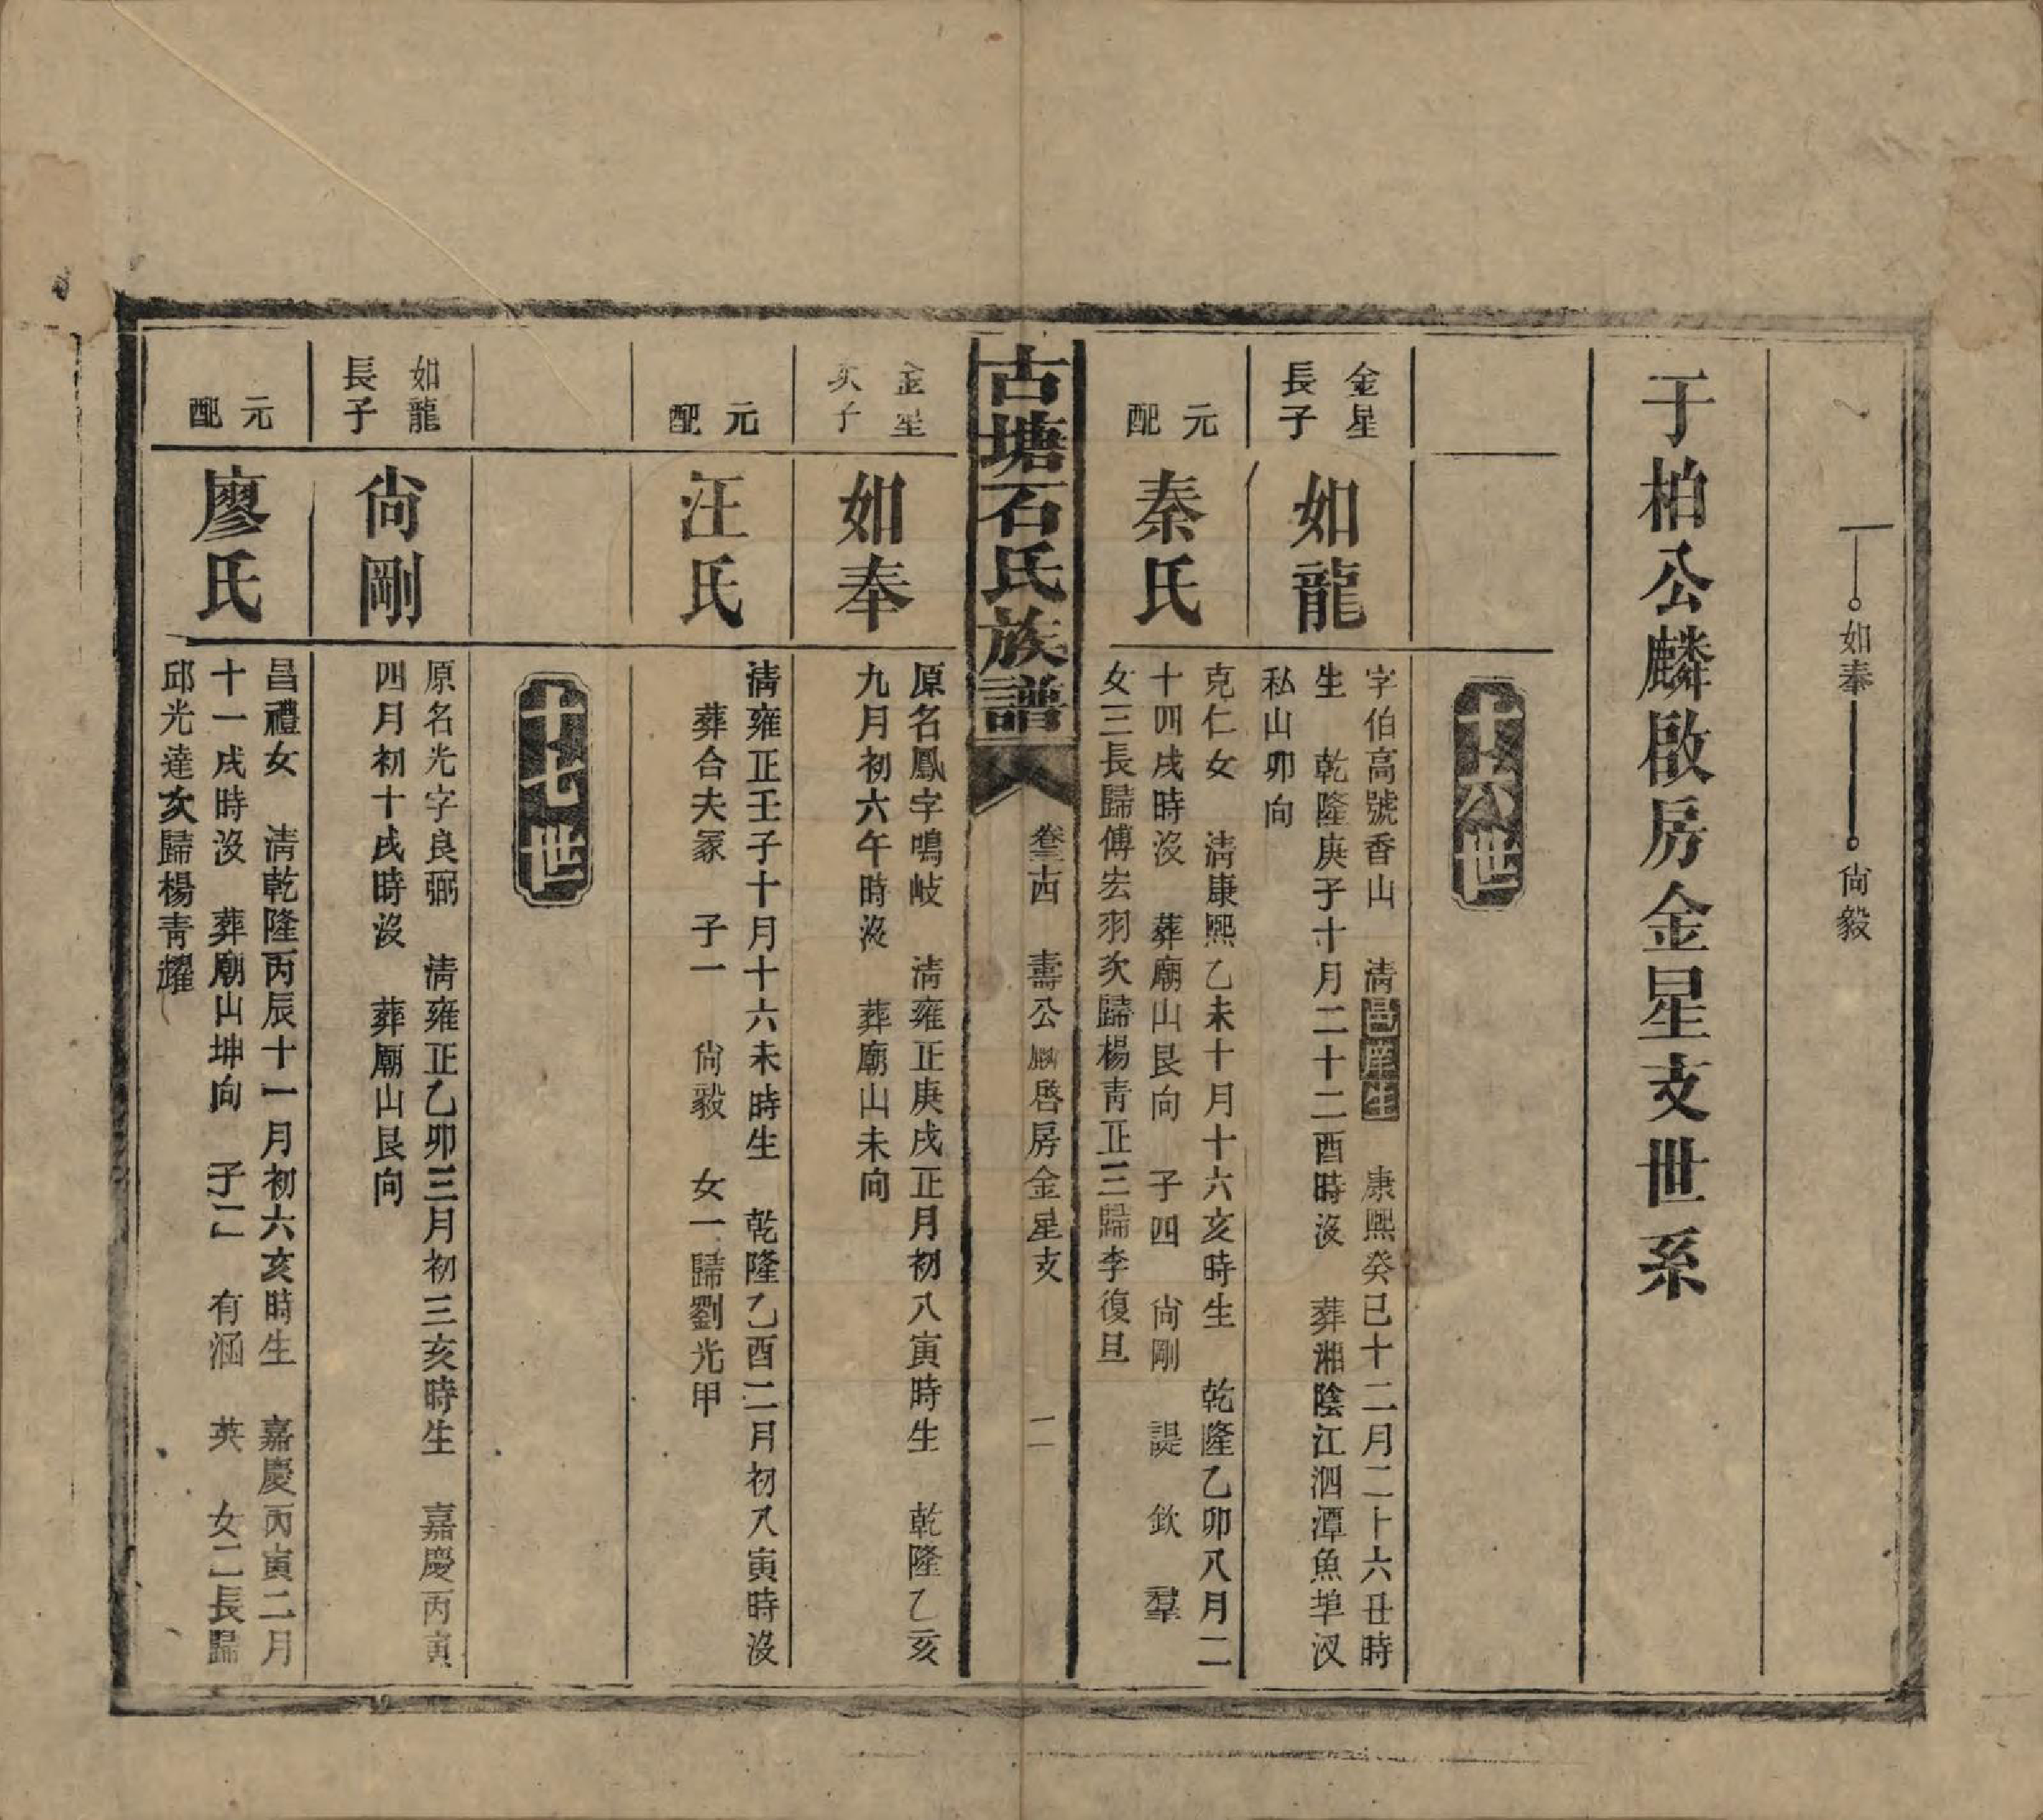 如奉 尙毅
于柏公麟啟房金星支世系
十六世
金星
長子
如龍
字伯高號香山 淸邑庠生 康熙癸巳十二月二十六丑時
生 乾隆庚子十月二十二酉時沒 葬湘陰江泗潭魚埠汊
私山卯向
元
配
秦氏
克仁女 淸康熙乙未十月十六亥時生 乾隆乙卯八月二
十四戌時沒 葬廟山艮向 子四 尙剛 諟 欽 羣
女三長歸傅宏羽次歸楊靑正三歸李復旦
古塘石氏族譜
卷三西 壽公麟啓房金星支 二
金星
次子
如奉
原名鳳字鳴岐 淸雍正庚戌正月初八寅時生 乾隆乙亥
九月初六午時沒 葬廟山未向
元
配
汪氏
淸雍正壬子十月十六未時生 乾隆乙酉二月初八寅時沒
葬合夫冢 子一 尙毅 女一歸劉光甲
十七世
如龍
長子
尙剛
原名光字良弼 淸雍正乙卯三月初三亥時生 嘉慶丙寅
四月初十戌時沒 葬廟山艮向
元
配
廖氏
昌禮女 淸乾隆丙辰十一月初六亥時生 嘉慶丙寅二月
十一戌時沒 葬廟山坤向 子二 有涵 英 女二長歸
邱光達次歸楊靑耀